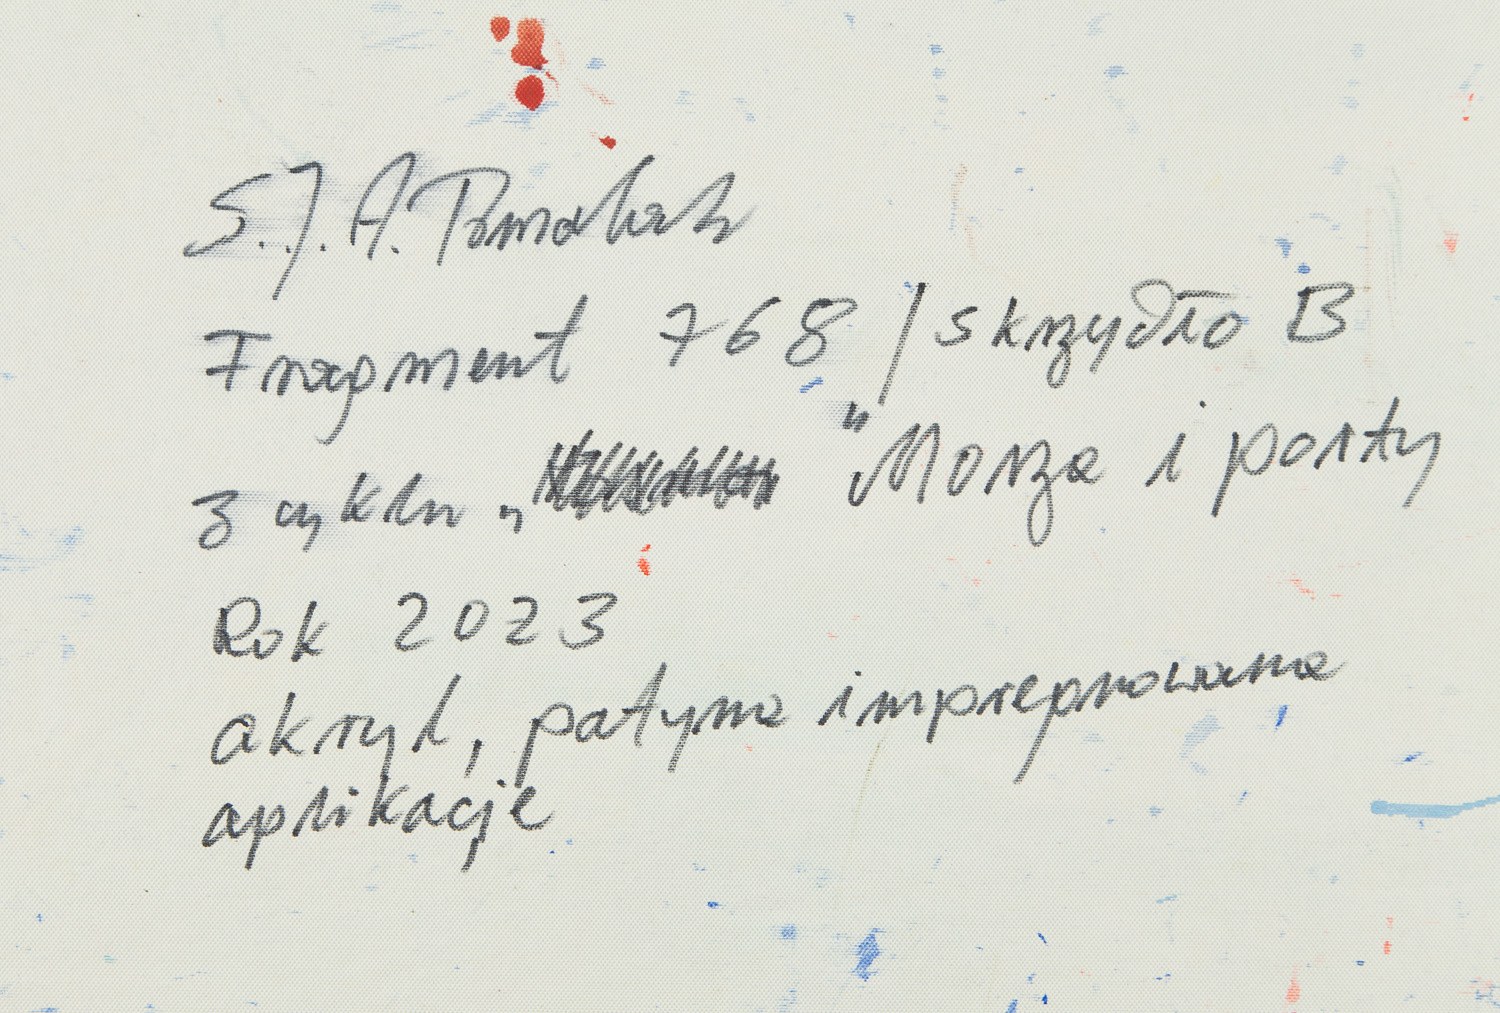 S.J.A.
Fragment 768 / skrzydło B
z cyklu „ "Morza i porty
Rok 2023
akryl, patyna impregnowana
aplikacje